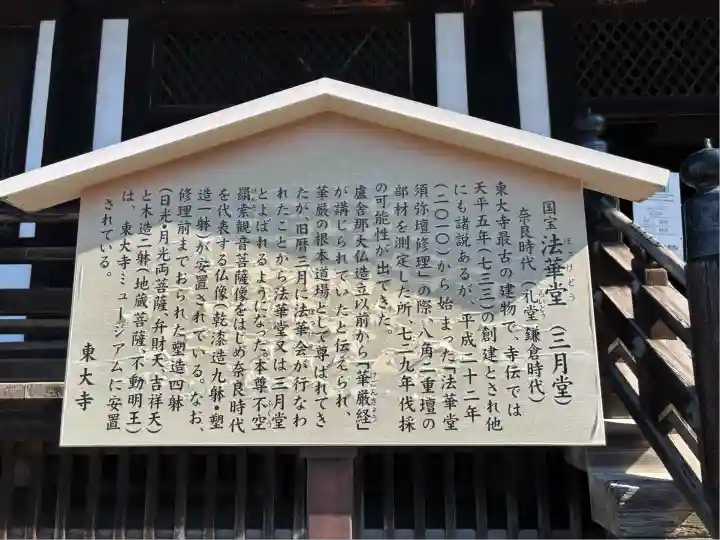 国宝 法華堂(三月堂)
ほっけどう
奈良時代(礼堂 鎌倉時代)
らいどう
東大寺最古の建物で、寺伝では
天平五年(七三三)の創建とされ他
にも諸説あるが、平成二十二年
(二〇一〇)から始まった「法華堂
須弥壇修理」の際、八角二重壇の
部材を測定した所、七二九年伐採
の可能性が出てきた。
盧舎那大仏造立以前から「華厳経」
けごんきょう
が講じられていたと伝えられ、
華厳の根本道場として尊ばれてき
たが、旧暦三月に法華会が行なわ
れたことから法華堂又は三月堂
とよばれるようになった。本尊不空
羂索観音菩薩像をはじめ奈良時代
を代表する仏像(乾漆造九躰・塑
造一躰)が安置されている。なお、
修理前までおられた塑造四躰
(日光・月光両菩薩、弁財天、吉祥天)
と木造二躰(地蔵菩薩、不動明王)
は、東大寺ミュージアムに安置
されている。
東大寺